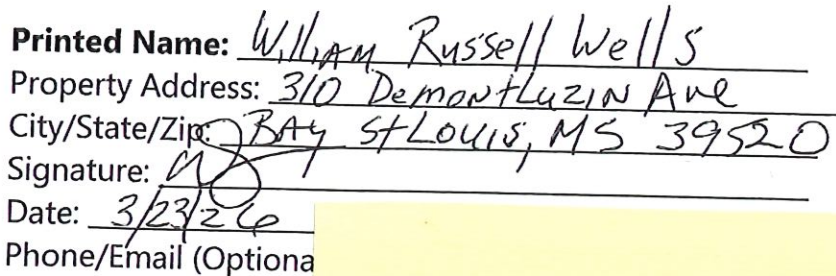 Printed Name: William Russell Wells
Property Address: 310 DeMontLuzin Ave
City/State/Zip: BAY St Louis, MS 39520
Signature:
Date: 3/23/26
Phone/Email (Optiona